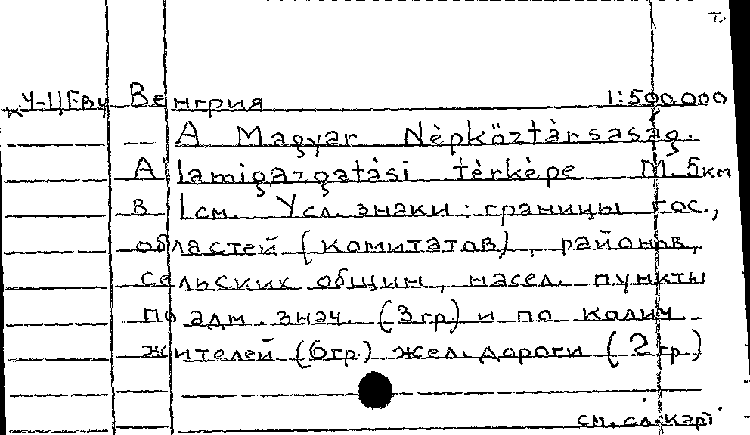 У-ЦЕву Венгрия 1:500.000
A Magyar Nèpköztàrsaság.
A'lamigazgatási térképe М. 5км
в 1см. Усл. знаки: границы гос.,
областей (комитатов), районов,
сельских общин, насел. пункты
по адм. знач. (3гр.) и по колич.
жителей (6гр.) жел. дороги (2гр.)
см. сл. карт